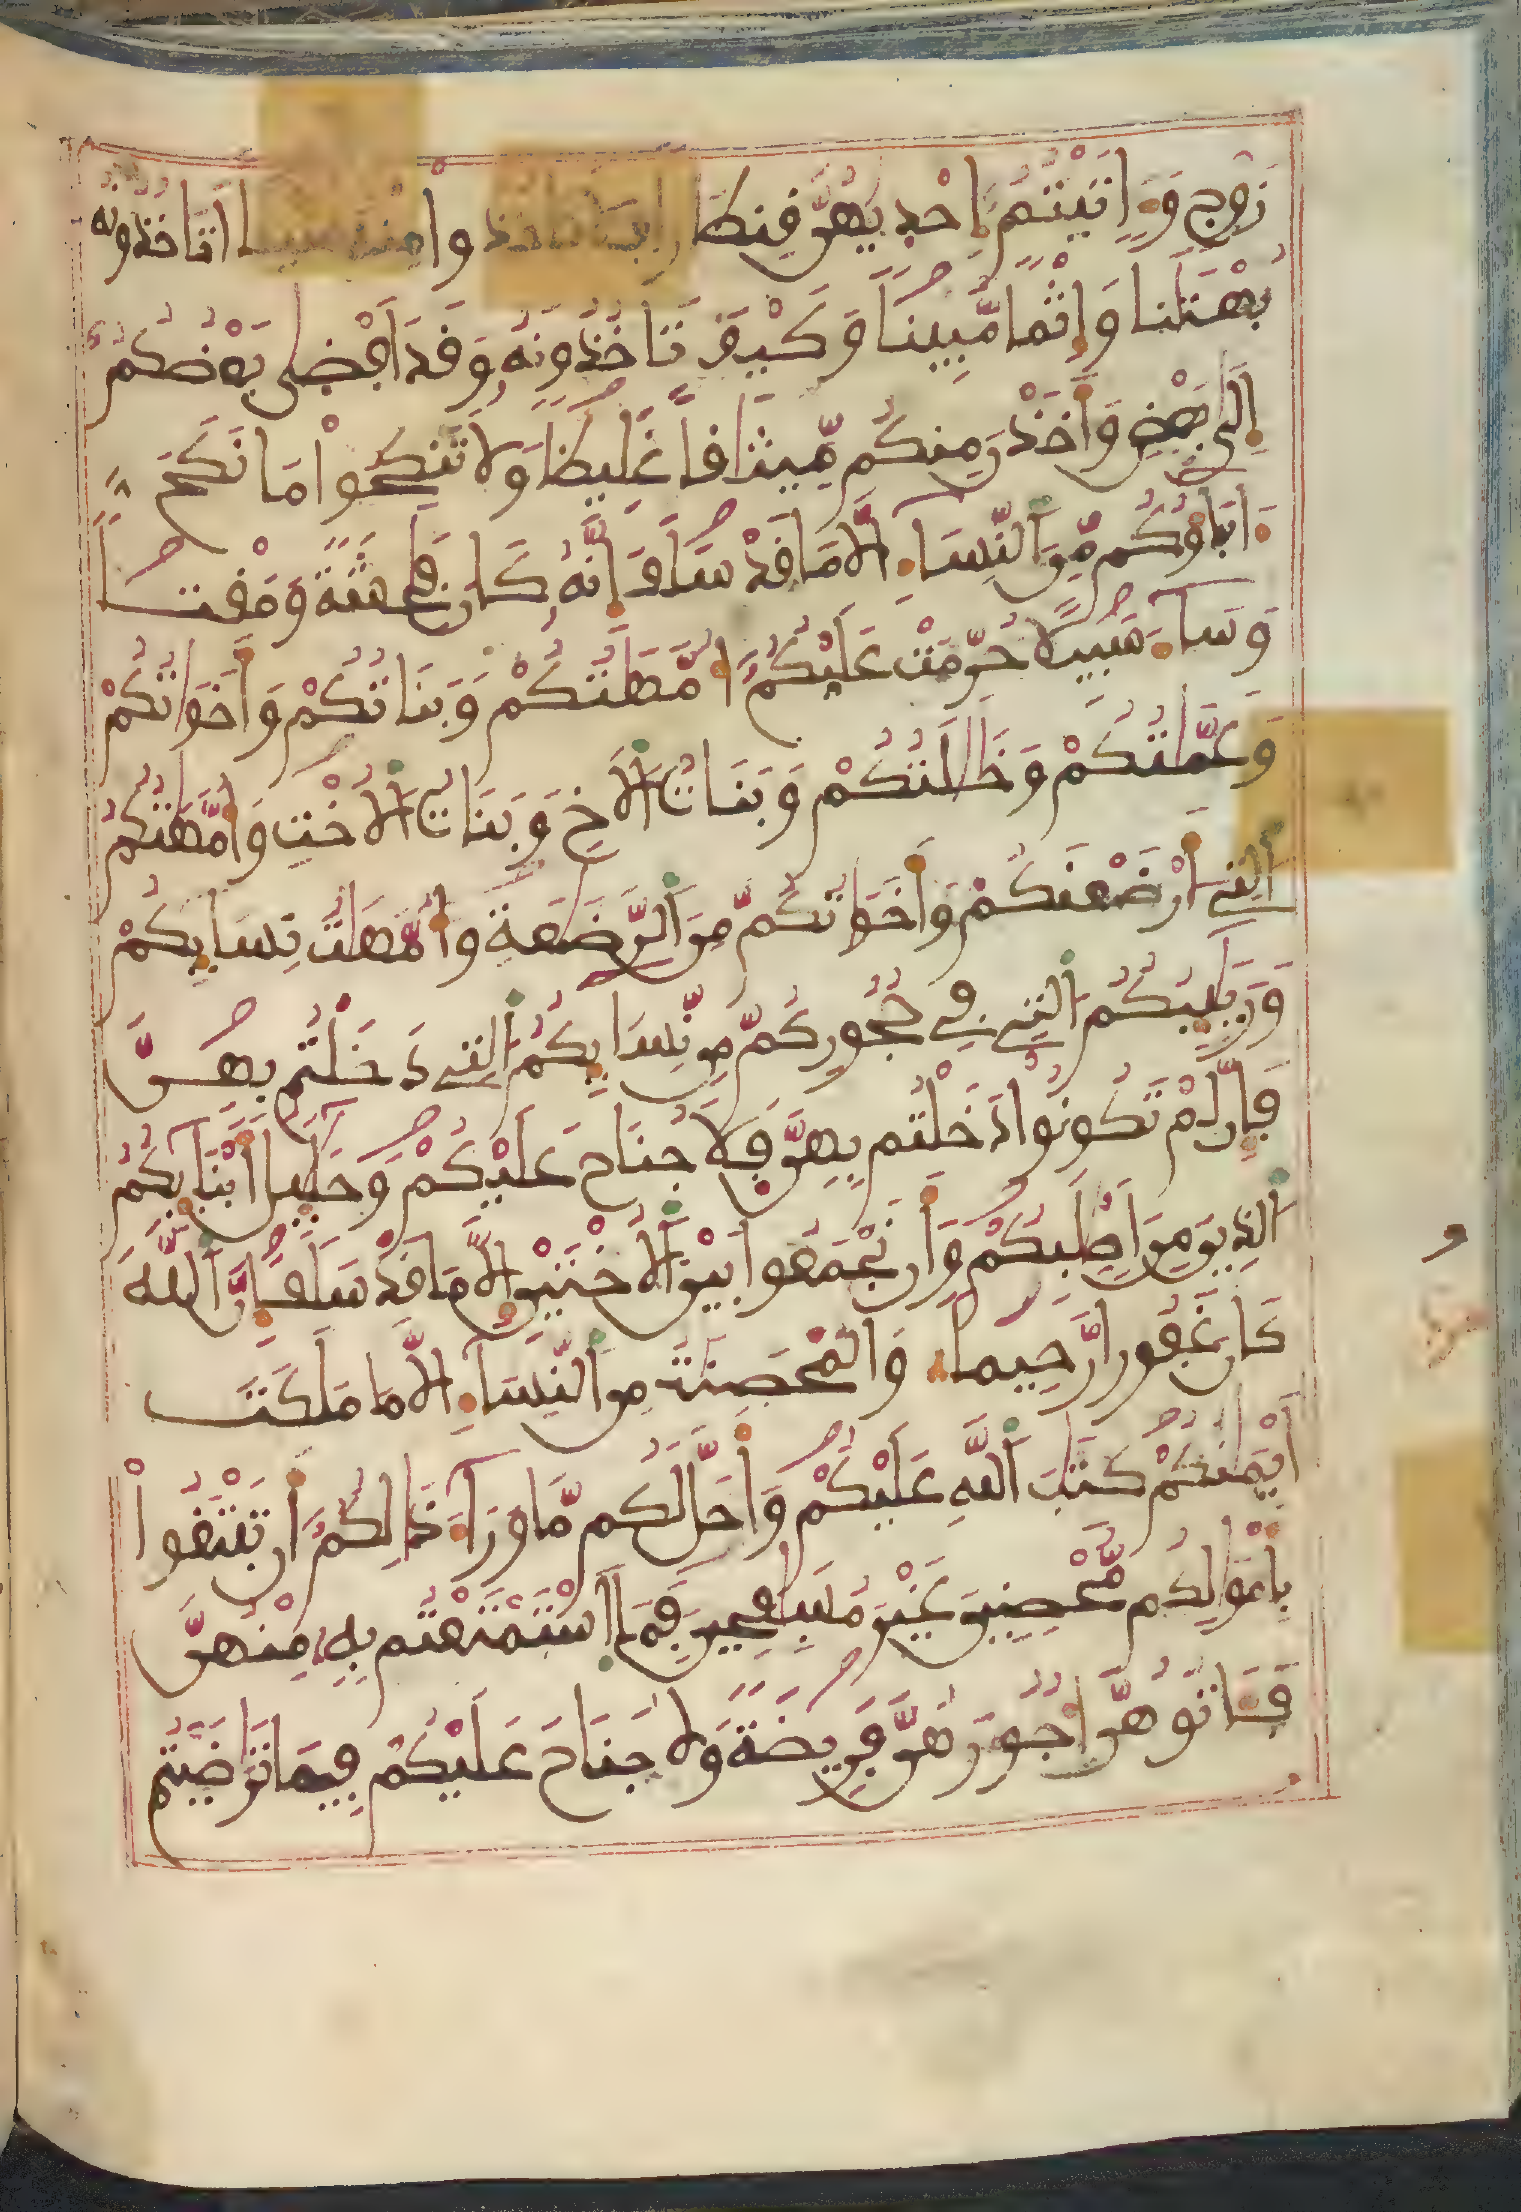 زَوْجٍ وَءَاتَيْتُمُ إِحْدٜيٰهُنَّ فِنطَاراٗ فَلَا تَاخُذُواْ مِنْهُ شَيْـٔاً اَتَاخُذُونَهُۥ
بُهْتَٰناٗ وَإِثْماٗ مُّبِيناٗ وَكَيْفَ تَاخُذُونَهُۥ وَقَدَ اَفْضٜيٰ بَعْضُكُمُۥ
إِلَيٰ بَعْضٖ وَأَخَذْنَ مِنكُم مِّيثَٰقاً غَلِيظاٗ وَلَا تَنكِحُواْ مَا نَكَحَ
ءَابَآؤُكُم مِّنَ اَلنِّسَآءِ الَّا مَا قَدْ سَلَفَ إِنَّهُۥ كَانَ فَٰحِشَةٗ وَمَقْتاٗ
وَسَآءَ سَبِيلاً حُرِّمَتْ عَلَيْكُمُۥٓ أُمَّهَٰتُكُمْ وَبَنَاتُكُمْ وَأَخَوَاتُكُمْ
وَعَمَّٰتُكُمْ وَخَٰلَٰتُكُمْ وَبَنَاتُ اَلَاخِ وَبَنَاتُ اَلُاخْتِ وَأُمَّهَٰتُكُمُ
اَلٰتِے أَرْضَعْنَكُمْ وَأَخَوَاتُكُم مِّنَ اَلرَّضَٰعَةِ وَأُمَّهَٰتُ نِسَآئِكُمْ
وَرَبَٰٓئِبُكُمُ اَلٰتِے فِے حُجُورِكُم مِّن نِّسَآئِكُمُ اَلٰتِے دَخَلْتُم بِهِنَّ
فَإِن لَّمْ تَكُونُواْ دَخَلْتُم بِهِنَّ فَلَا جُنَاحَ عَلَيْكُمْ وَحَلَٰٓئِلُ أَبْنَآئِكُمُ
اَلذِينَ مِنَ اَصْلَٰبِكُمْ وَأَن تَجْمَعُواْ بَيْنَ اَلُاخْتَيْنِ إِلَّا مَا قَدْ سَلَفَ إِنَّ اَللَّهَ
كَانَ غَفُوراٗ رَّحِيماٗ وَالْمُحْصَنَٰتُ مِنَ اَلنِّسَآءِ الَّا مَا مَلَكَتَ
اَيْمَٰنُكُمْ كِتَٰبَ اَللَّهِ عَلَيْكُمْ وَأَحَلَّ لَكُم مَّا وَرَآءَ ذَٰلِكُمُۥٓ أَن تَبْتَغُواْ
بِأَمْوَٰلِكُم مُّحْصِنِينَ غَيْرَ مُسَٰفِحِينَ فَمَا اَسْتَمْتَعْتُم بِهِۦ مِنْهُنَّ
فَـَٔاتُوهُنَّ أُجُورَهُنَّ فَرِيضَةٗ وَلَا جُنَاحَ عَلَيْكُمْ فِيمَا تَرَٰضَيْتُم